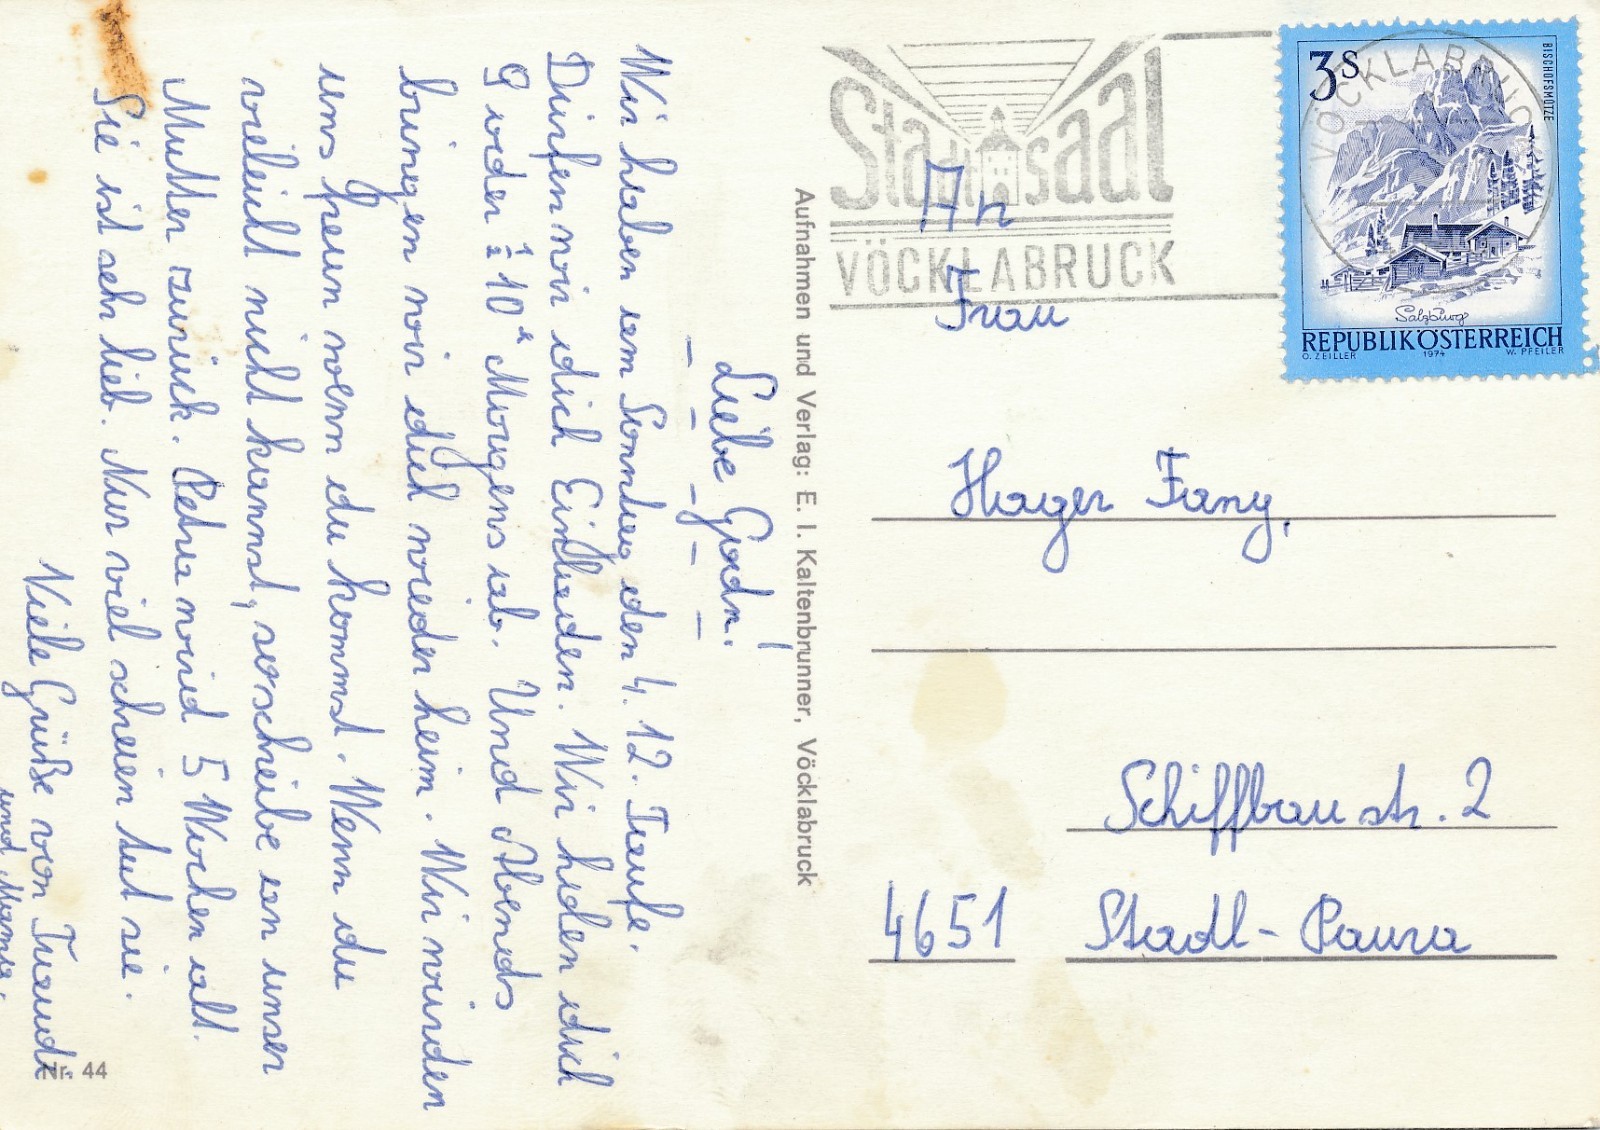 Liebe Godn!
Wir haben am Sonntag den 4. 12. Taufe.
Dürfen wir dich Einladen. Wir hölen dich
9 oder ½ 10ʰ Morgens ab. Und Abends
bringen wir dich wieder heim. Wir würden
uns freun wenn du kommst. Wenn du
vieleicht nicht kannst, so schreibe an unser
Mutter zurück. Petra wird 5 Wochen alt.
Sie ist seh lieb. Nur viel schreien tut sie.
Viele Grüße von Traudi
und Mama.
Nr. 44
Aufnahmen und Verlag: E. I. Kaltenbrunner, Vöcklabruck
Stadtsaal
VÖCKLABRUCK
VÖCKLABRUCK
3S
BISCHOFSMÜTZE
Salzburg
REPUBLIK ÖSTERREICH
O. ZEILLER 1974 W. PFEILER
An
Frau
Hager Fany,
Schiffbaustr. 2
4651 Stadl-Paura